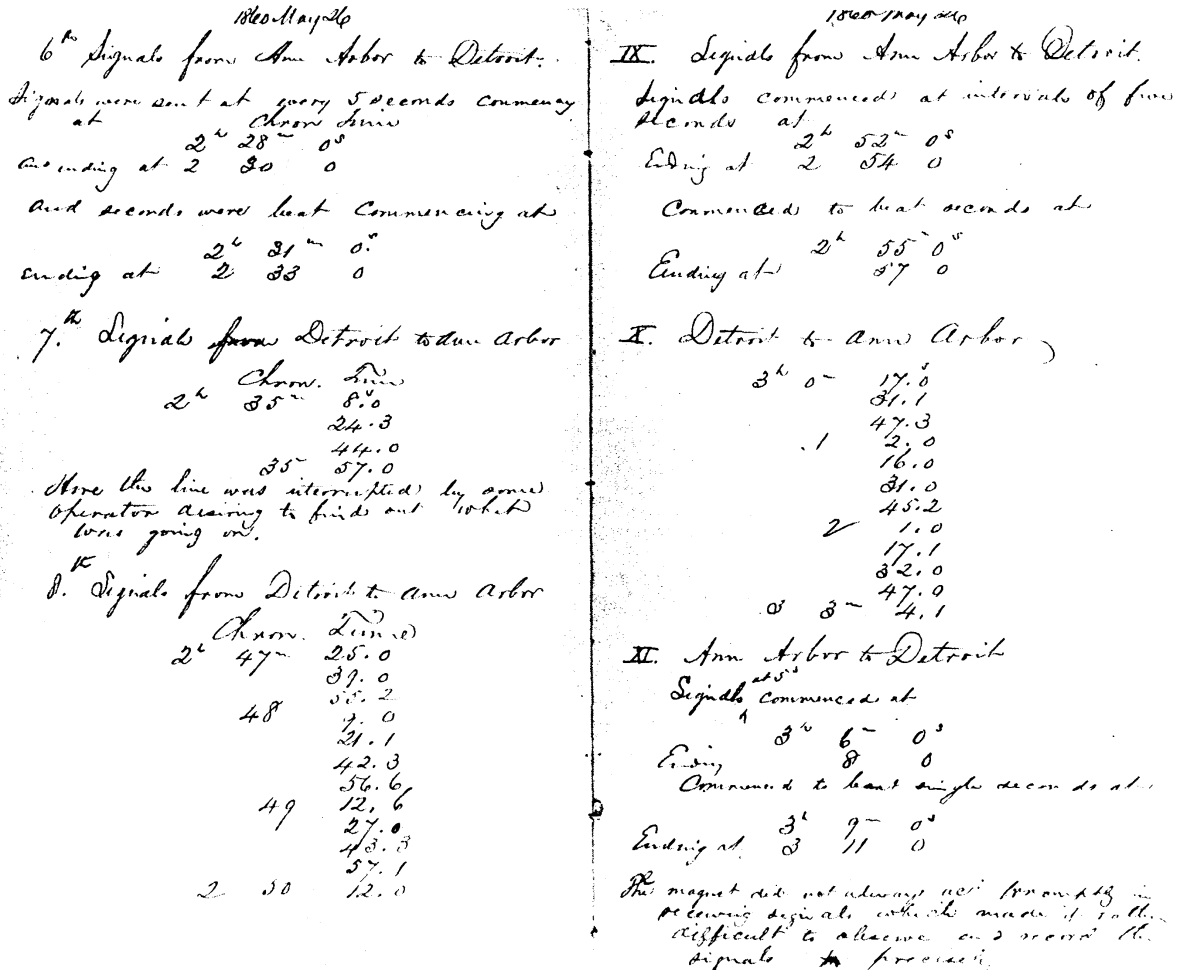 1860 May 26
6th Signals from Ann Arbor to Detroit.
Signals were sent at every 5 seconds commencing
at Chron Time
2h 28m 0s
and ending at 2 30 0
and seconds were beat Commencing at
2h 31m 0s.
ending at 2 33 0
7.th Signals from Detroit to Ann Arbor
Chron. Time
2h 35m 8.s0
24.3
44.0
35 57.0
Here the line was interrupted by some
operator desiring to find out what
was going on.
8.th Signals from Detroit to Ann Arbor
Chron. Time
2h 47m 25.0
39.0
55.2
48 9.0
21.1
42.3
56.6
49 12.6
27.0
43.3
57.1
2 50 12.0
1860 May 26
IX. Signals from Ann Arbor to Detroit.
Signals commenced at intervals of five
seconds at
2h 52m 0s
Ending at 2 54 0
Commenced to beat seconds at
2h 55m 0s
Ending at 57 0
X. Detroit to Ann Arbor
3h 0m 17.s0
31.1
47.3
.1 2.0
16.0
31.0
45.2
2 1.0
17.1
32.0
47.0
3 3m 4.1
XI. Ann Arbor to Detroit
Signals at 5s commenced at
3h 6m 0s
Ending 8 0
Commenced to beat single seconds at
3h 9m 0s
Ending at 3 11 0
The magnet did not always act promptly in
receiving signals which made it rather
difficult to observe and record the
signals precisely